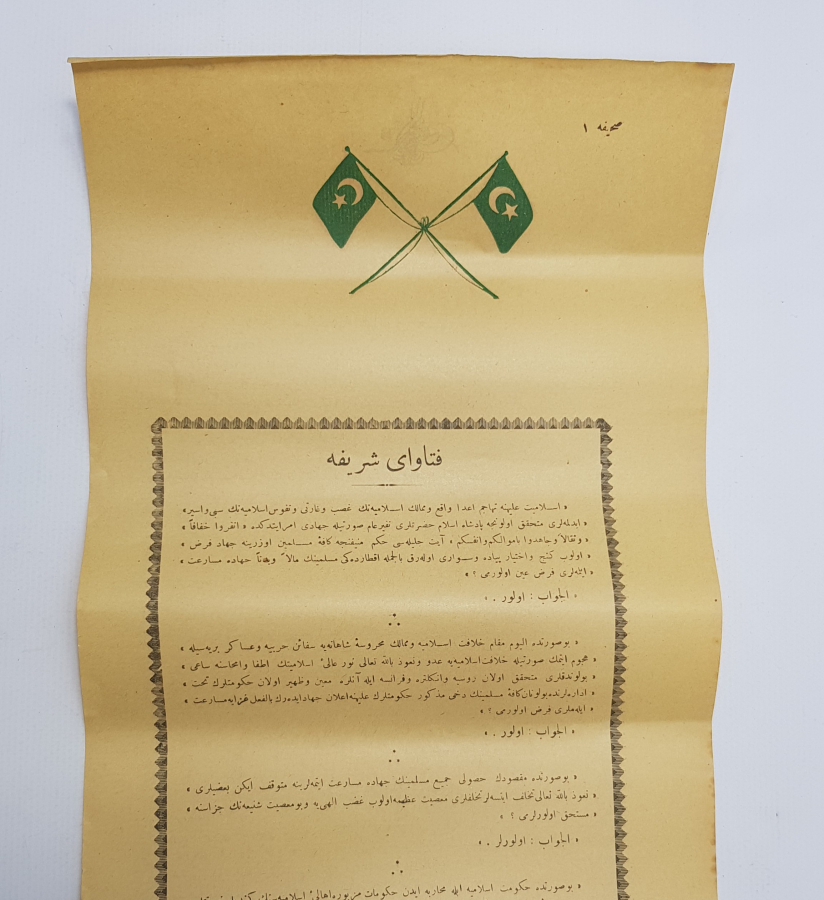 صحیفه ١
فتاوای شریفه
« اسلامیت علیهنه تهاجم اعدا واقع وممالك اسلامیه‌نك غصب وغارتی ونفوس اسلامیه‌نك سبی واسیر »
« ایدلمه‌لری متحقق اولونجه پادشاه اسلام حضرتلری نفیر عام صورتیله جهادی امر ایتدكده « انفروا خفافاً »
« وثقالاً وجاهدوا باموالكم وانفسكم » آیت جلیله‌سی حكم منیفنجه كافهٔ مسلمین اوزرینه جهاد فرض »
« اولوب كنج واختیار پیاده وسواری اوله‌رق بالجمله اقطارده‌كی مسلمینك مالاً وبدناً جهاده مسارعت »
« ایتمه‌لری فرض عین اولورمی ؟ »
« الجواب : اولور . »
« بوصورتده الیوم مقام خلافت اسلامیه وممالك محروسهٔ شاهانه‌یه سفائن حربیه وعساكر بریه‌سیله »
« هجوم ایتمك صورتیله خلافت اسلامیه‌یه عدو ونعوذ بالله تعالی نور عالیٔ اسلامیتك اطفا وامحاسنه ساعی »
« بولوندقلری متحقق اولان روسیه وانكلتره وفرانسه ایله آنلره معین وظهیر اولان حكومتلرك تحت »
« اداره‌لرنده بولونان كافهٔ مسلمینك دخی مذكور حكومتلرك علیهنه اعلان جهاد ایده‌رك بالفعل غزایه مسارعت »
« ایله‌ملری فرض اولورمی ؟ »
« الجواب : اولور . »
« بوصورتده مقصودك حصولی جمیع مسلمینك جهاده مسارعت ایتمه‌لرینه متوقف ایكن بعضیلری »
« نعوذ بالله تعالی تخلف ایتسه‌لر تخلفلری معصیت عظیمه اولوب غضب الهی‌یه وبو معصیت شنیعه‌نك جزاسنه »
« مستحق اولورلرمی ؟ »
« الجواب : اولورلر . »
« بوصورتده حكومت اسلامیه ایله محاربه ایدن حكومات مزبوره اهالیٔ اسلامیه‌سنك